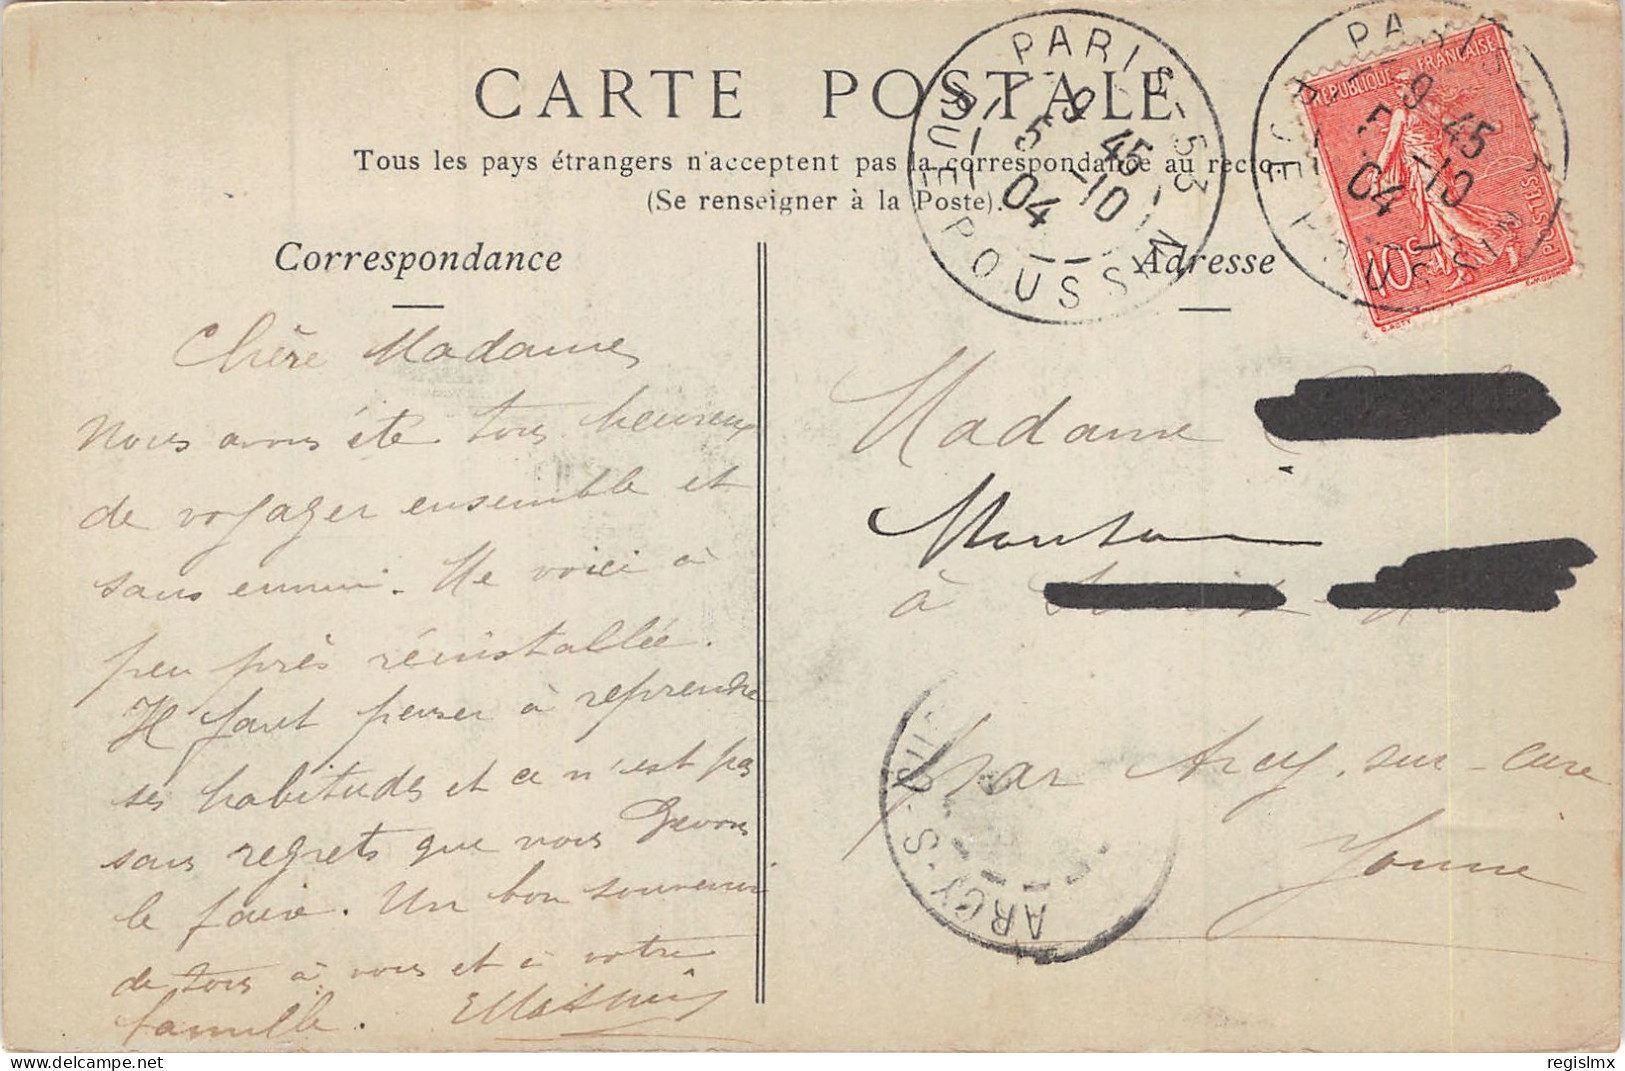 CARTE POSTALE
Tous les pays étrangers n'acceptent pas la correspondance au recto.
(Se renseigner à la Poste).
Correspondance
Adresse
Chère Madame,
Nous avons été tous heureux
de voyager ensemble et
sans ennui. Me voici à
peu près réinstallée.
Il faut penser à reprendre
ses habitudes et ce n'est pas
sans regrets que nous devons
le faire. Un bon souvenir
de tous à vous et à votre
famille.
PARIS-53
RUE POUSSIN
9 45
5 -10
04
PARIS-53
RUE POUSSIN
9 45
5 -10
04
RÉPUBLIQUE FRANÇAISE
POSTES
10c
Madame
à
par Arcy-sur-Cure
Yonne
ARCY-S
regislmx